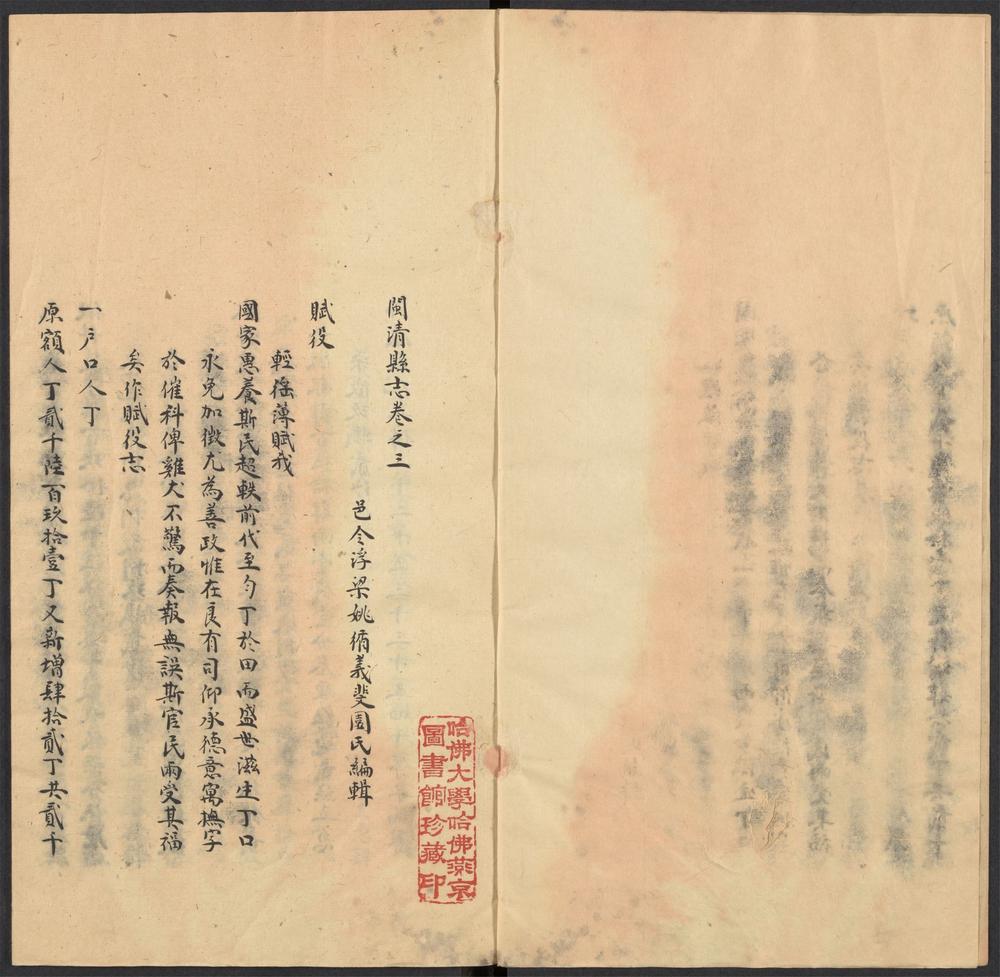 閩清縣志卷之三
邑令浮梁姚循義斐園氏編輯
賦役
輕徭薄賦我
國家惠養斯民超軼前代至勻丁於田而盛世滋生丁口
永免加徵尤為善政惟在良有司仰承德意寓撫字
於催科俾雞犬不驚而奏報無誤斯官民兩受其福
矣作賦役志
一户口人丁
原額人丁貳千陸百玖拾壹丁又新增肆拾貳丁共貳千
哈佛大學哈佛燕京
圖書館珍藏印